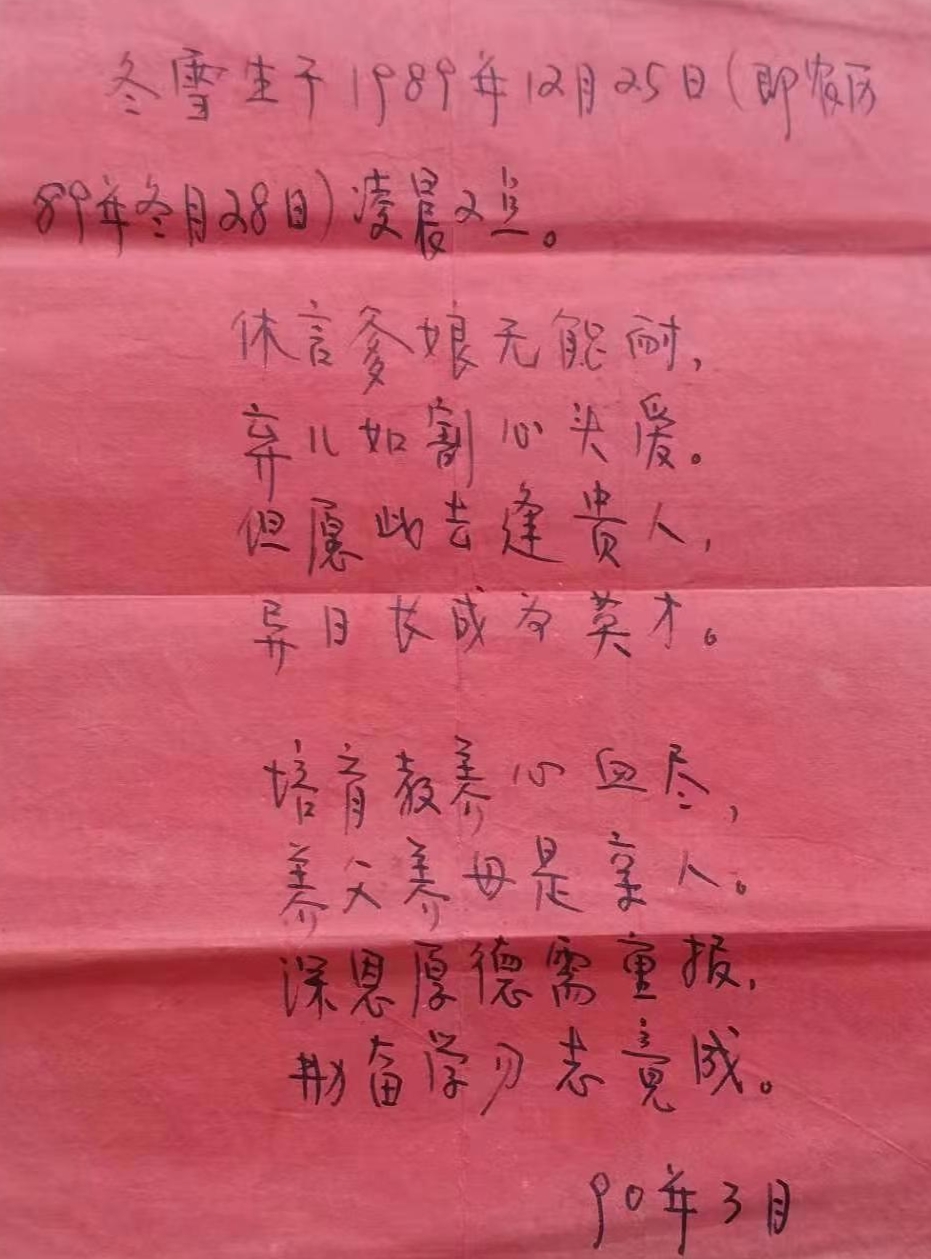 冬雪生于1989年12月25日(即农历
89年冬月28日)凌晨2点。
休言爹娘无能耐,
弃儿如割心头爱。
但愿此去逢贵人,
异日长成为英才。
培育教养心血尽,
养父养母是亲人。
深恩厚德需重报,
勤奋学习志竟成。
90年3月